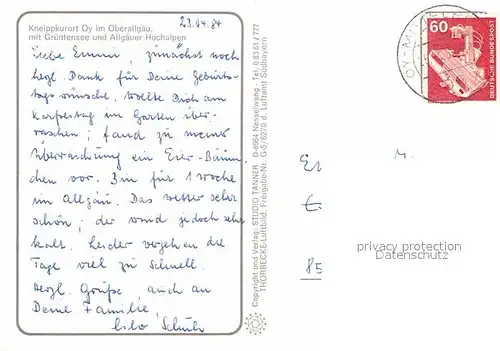 23.04.84
Kneippkurort Oy im Oberallgäu,
mit Grüntensee und Allgäuer Hochalpen
Liebe Emmi, zunächst noch
herzl. Dank für Deine Geburts-
tagswünsche. Wollte Dich am
Karfreitag im Garten über-
raschen; fand zu meiner
Überraschung ein Eier-Bäum-
chen vor. Bin für 1 Woche
im Allgäu. Das Wetter sehr
schön; der Wind jedoch sehr
kalt. Leider vergehen die
Tage viel zu schnell.
Herzl. Grüße auch an
Deine Familie,
Copyright und Verlag: STUDIO TANNER D-8964 Nesselwang - Tel. 0 83 61 / 777
THORBECKE-Luftbild, Freigabe-Nr. G-5/6270 d. Luftamt Südbayern
60
DEUTSCHE BUNDESPOST
E.
85
privacy protection